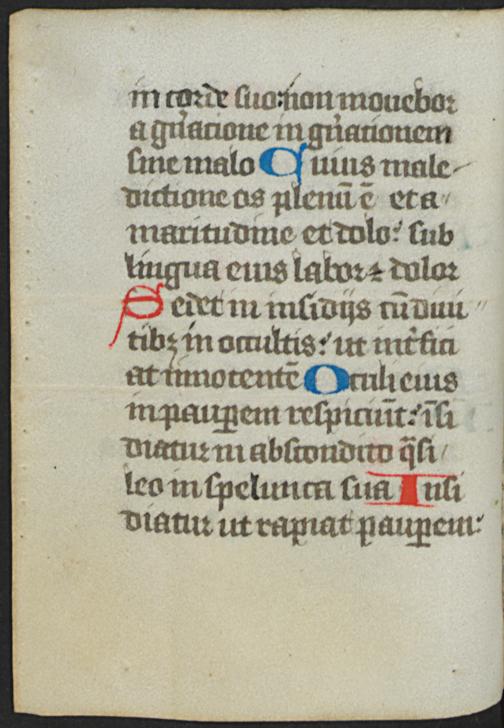 in corde suo: non mouebor
a gn̄acione in gn̄ationem
sine malo Cuius male-
dictione os plenū ē et a
maritudine et dolo: sub
lingua eius labor ⁊ dolor
Sedet in insidijs cū diui
tibꝫ in occultis: ut int̄fici
at innocentē Oculi eius
in pauꝑem respiciūt: īsi
diatur ī abscondito q̄si
leo in spelunca sua Insi
diatur ut rapiat pauꝑem: